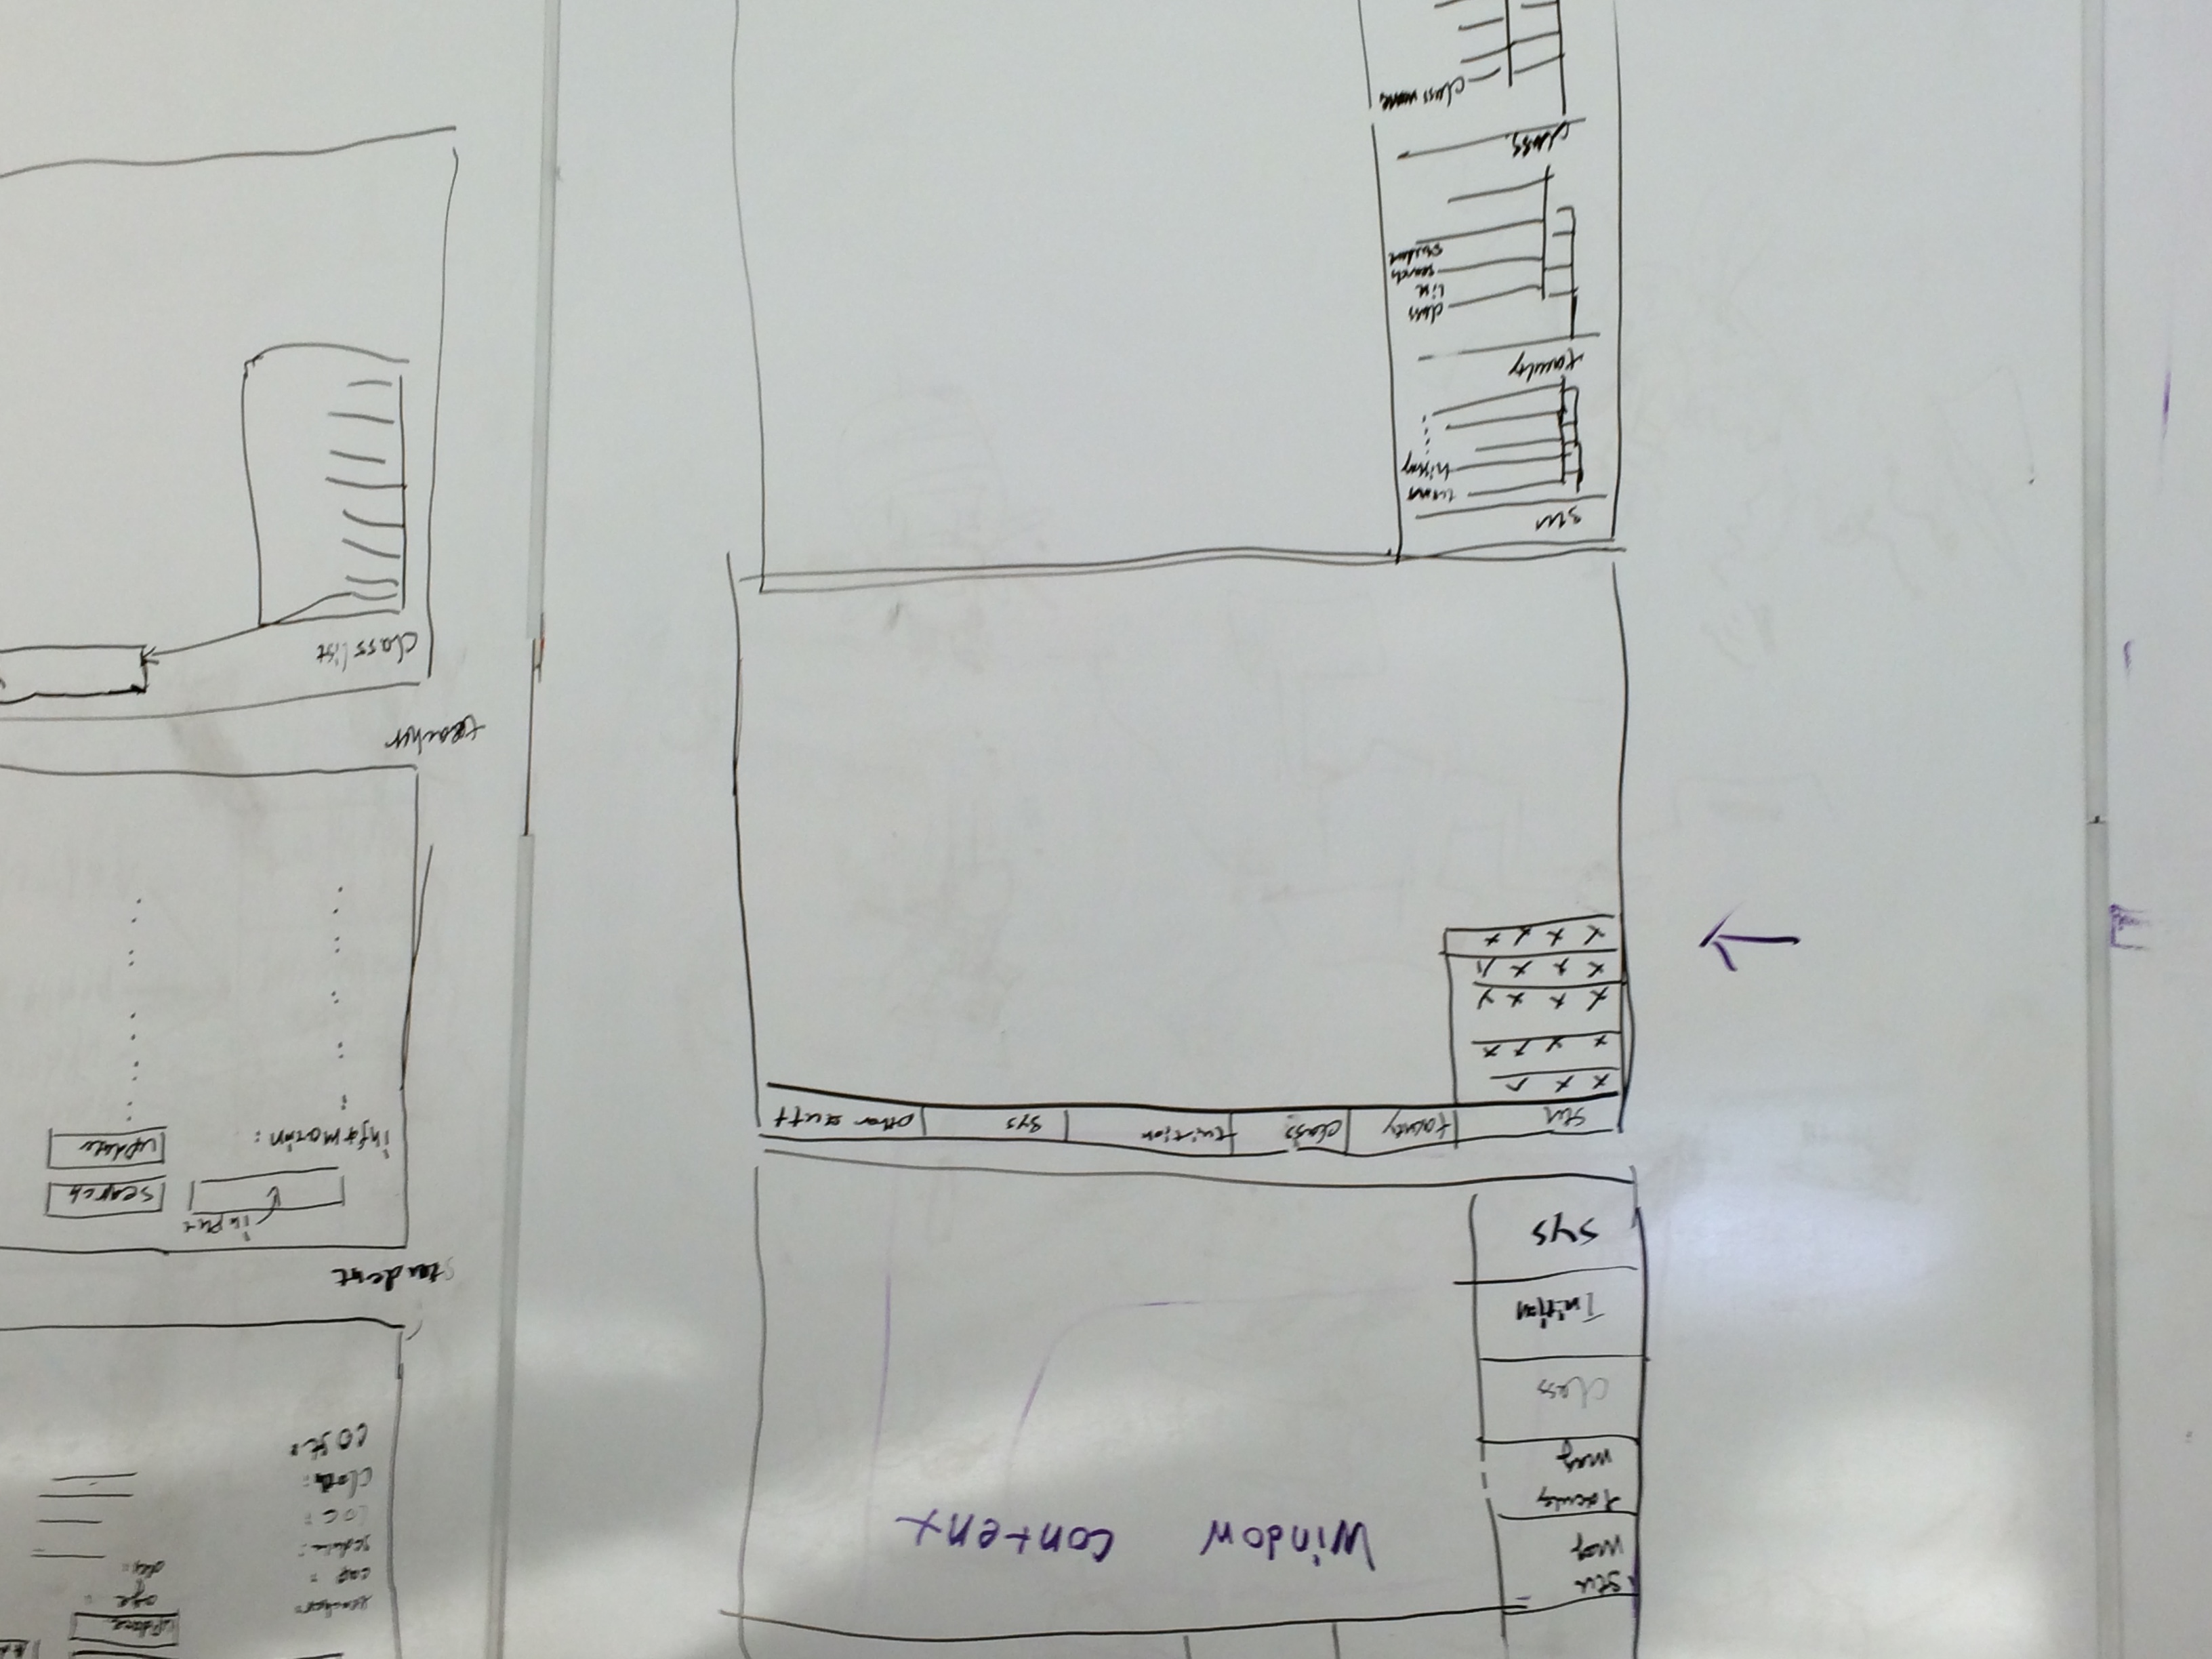 Stu
mag
faculty
mag
class
Tuition
sys
Window content
stu faculty class tuition sys other stuff
x x
x x x x
x x x y
x x x
x x x x
stu
history
faculty
class
list
search
student
class
class name
update
teacher:
age :
cap :
des:
loc :
cost:
student
input
search
information:
update
teacher
class list